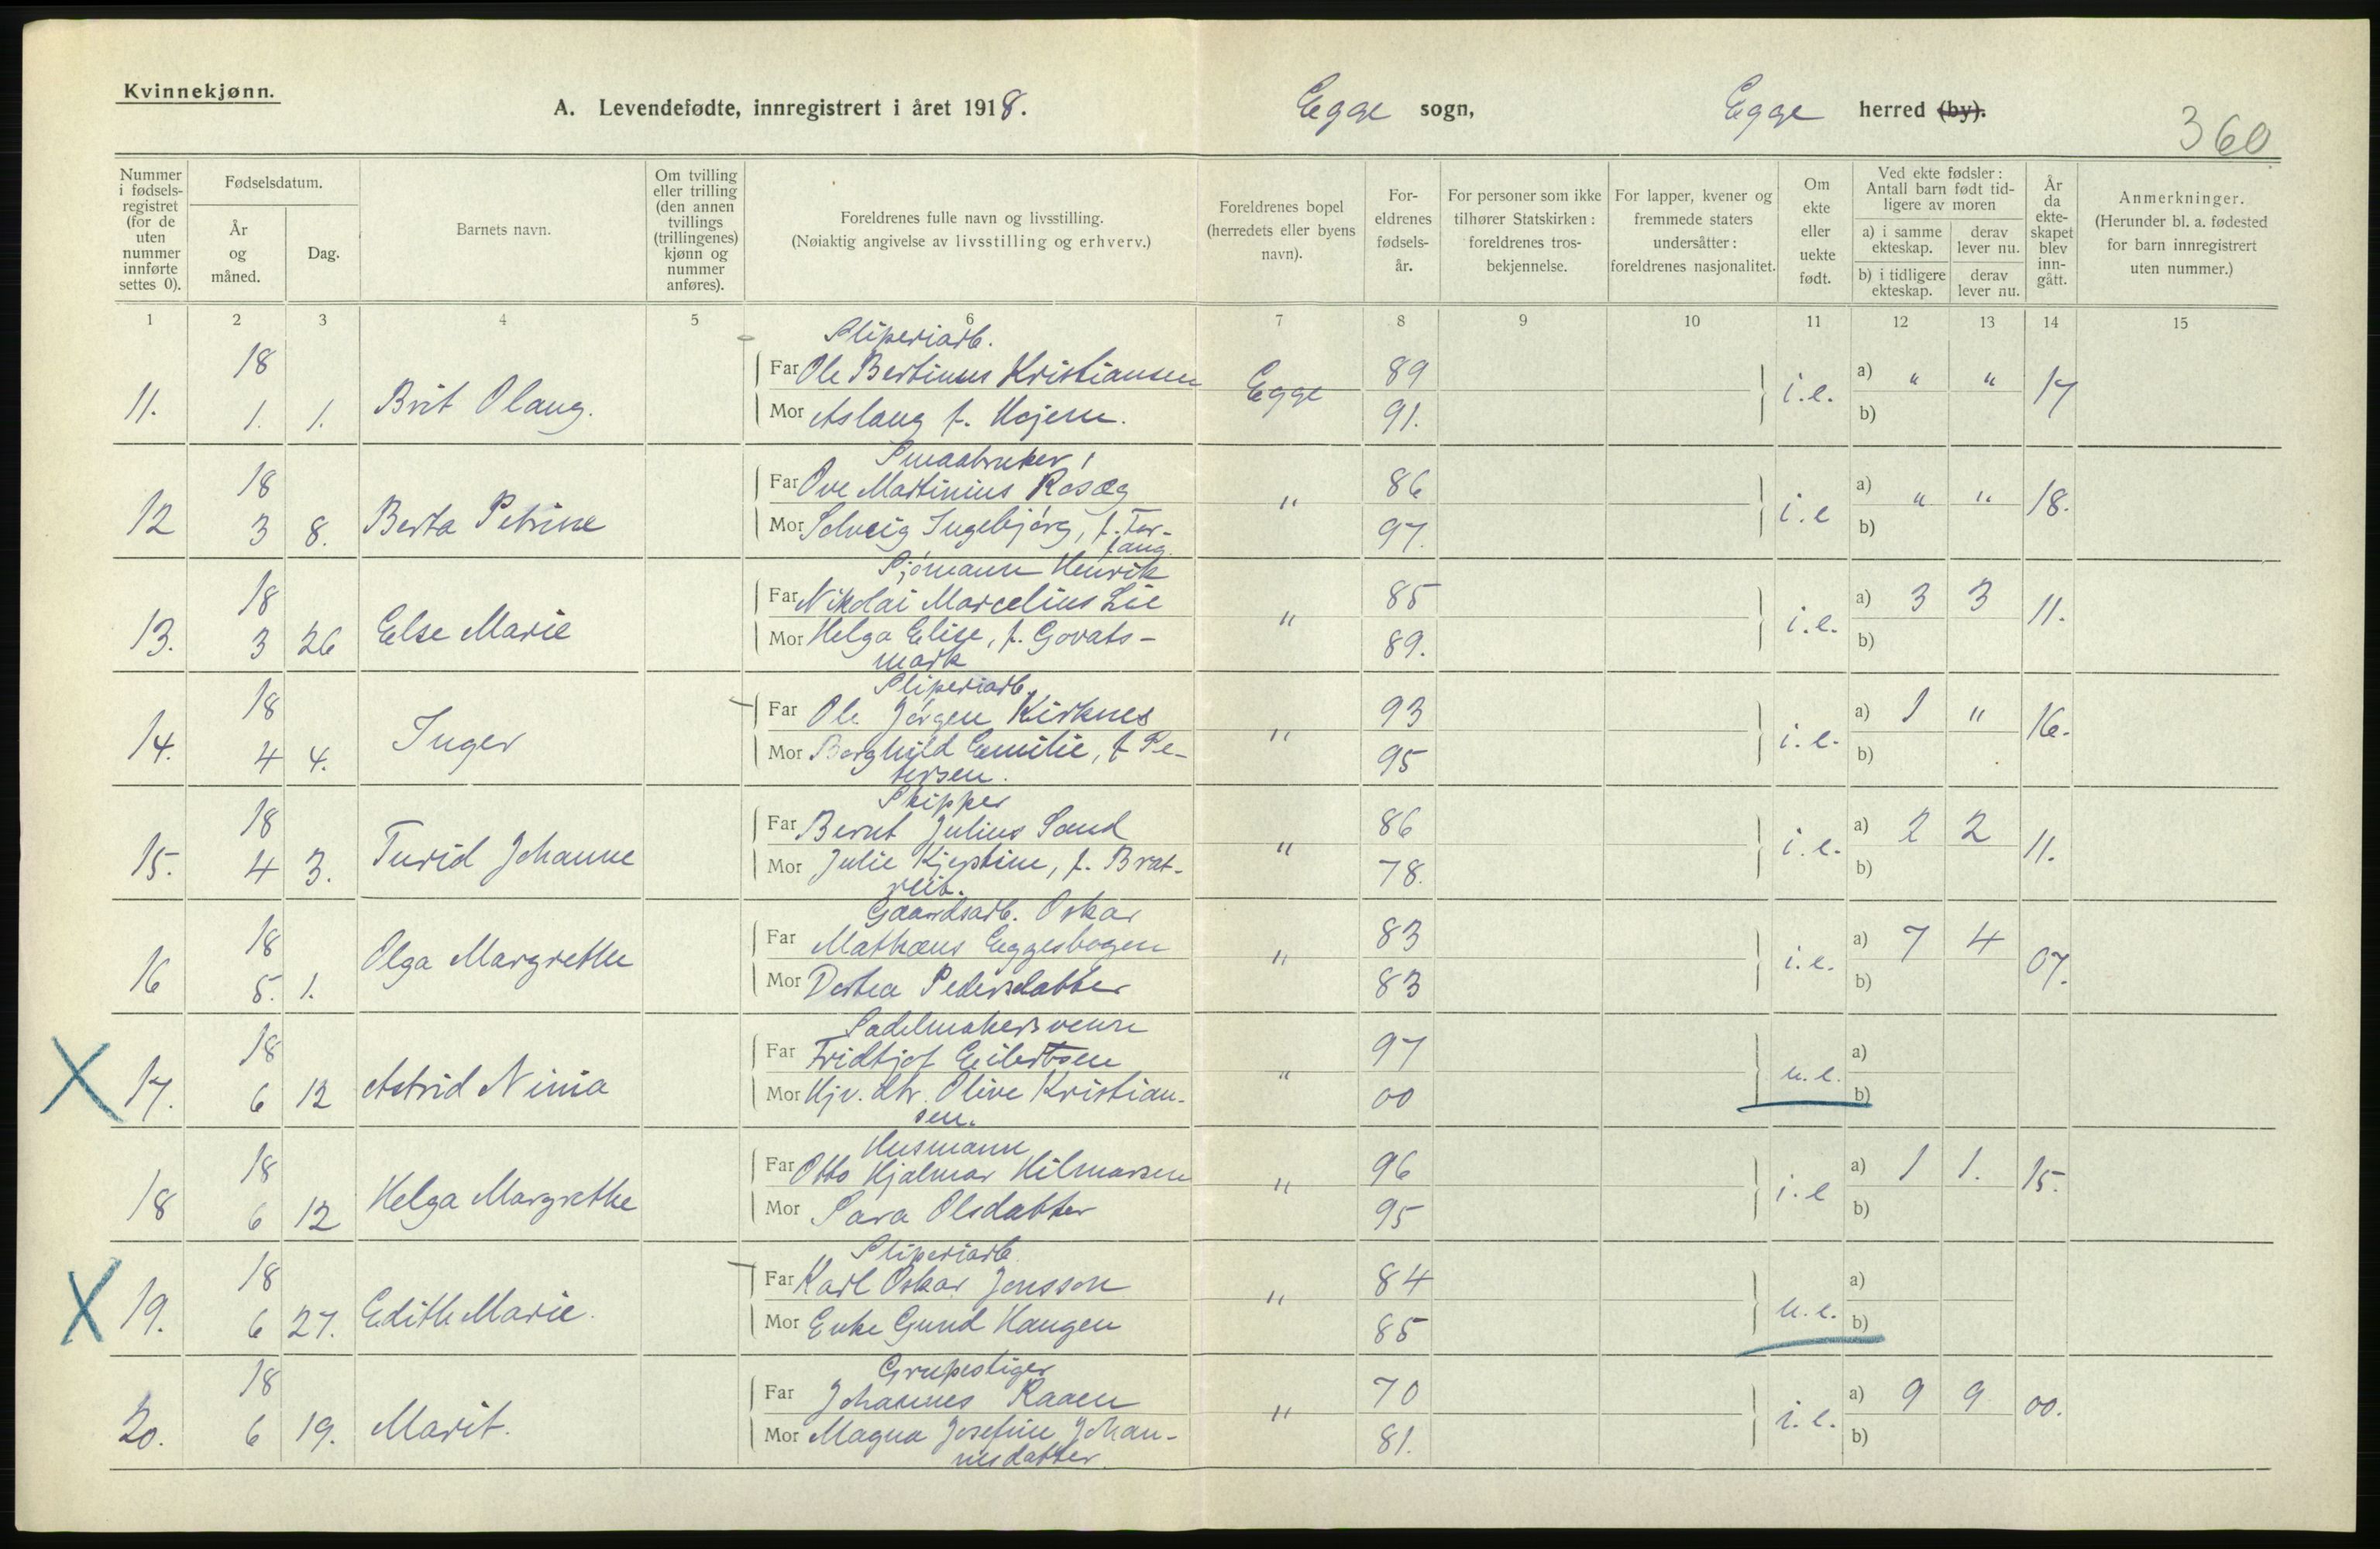 Kvinnekjønn.
A. Levendefødte, innregistrert i året 1918.
Egge sogn,
Egge herred (by).
360
Nummer i fødsels-registret (for de uten nummer innførte settes 0).
Fødselsdatum.
År og måned.
Dag.
Barnets navn.
Om tvilling eller trilling (den annen tvillings (trillingenes) kjønn og nummer anføres).
Foreldrenes fulle navn og livsstilling.
(Nøiaktig angivelse av livsstilling og erhverv.)
Foreldrenes bopel (herredets eller byens navn).
For-eldrenes fødsels-år.
For personer som ikke tilhører Statskirken: foreldrenes tros-bekjennelse.
For lapper, kvener og fremmede staters undersåtter: foreldrenes nasjonalitet.
Om ekte eller uekte født.
Ved ekte fødsler: Antall barn født tid-ligere av moren
a) i samme ekteskap.
derav lever nu.
b) i tidligere ekteskap.
derav lever nu.
År da ekte-skapet blev inn-gått.
Anmerkninger.
(Herunder bl. a. fødested for barn innregistrert uten nummer.)
1 2 3 4 5 6 7 8 9 10 11 12 13 14 15
Sliperiarb.
18 Far Ole Bertinus Kristiansen Egge 89 i.e. a) " " 17
11. 1. 1. Brit Olaug. Mor Aslaug f. Hojem. 91. b)
Smaabruker
18 Far Ove Martinius Rosæg " 86 i.e a) " " 18.
12 3 8. Berta Petrine Mor Solveig Ingebjørg, f. For-
fang 97. b)
Sjømann Henrik
18 Far Nikolai Marcelius Lie " 85 i.e. a) 3 3 11.
13. 3 26 Else Marie Mor Helga Elise, f. Govats-
mark 89. b)
Sliperiarb.
18 Far Ole Jørgen Kirknes " 93 i.e. a) 1 " 16.
14. 4 4. Inger Mor Borghild Emilie, f Pe-
tersen. 95 b)
Skipper
18 Far Bernt Julius Sand " 86 i.e. a) 2 2 11.
15. 4 3. Turid Johanne Mor Julie Kjerstine, f. Brat-
reit. 78. b)
Gaardsarb. Oskar
18 Far Mathæus Eggesbogen " 83 i.e. a) 7 4 07.
16 5. 1. Olga Margrethe Mor Dortea Pedersdatter 83 b)
Sadelmakersvenn
18 Far Fridtjof Eilertsen " 97 u.e. a)
X 17. 6 12 Astrid Ninia Mor Hjv. dtr. Olive Kristian-
sen. 00 b)
Husmann
18 Far Otto Hjalmar Hilmarsen " 96 i.e a) 1 1. 15.
18 6 12 Helga Margrethe Mor Sara Olsdatter 95 b)
Sliperiarb
18 Far Karl Oskar Jonsson " 84 u.e. a)
X 19. 6 27. Edith Marie. Mor Enke Gund Haugen 85 b)
Grubestiger
18 Far Johannes Raaen " 70 i.e. a) 9 9 00.
20. 6 19. Marit. Mor Magna Josefine Johan-
nesdatter. 81. b)